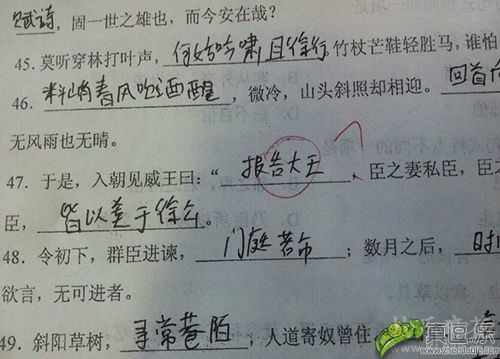 赋诗，固一世之雄也，而今安在哉？
45. 莫听穿林打叶声，何妨吟啸且徐行 竹杖芒鞋轻胜马，谁怕
46. 料峭春风吹酒醒，微冷，山头斜照却相迎。回首向
无风雨也无晴。
47. 于是，入朝见威王曰：“报告大王，臣之妻私臣，臣
臣，皆以美于徐公。
48. 令初下，群臣进谏，门庭若市；数月之后，时
欲言，无可进者。
49. 斜阳草树，寻常巷陌，人道寄奴曾住
真句乐